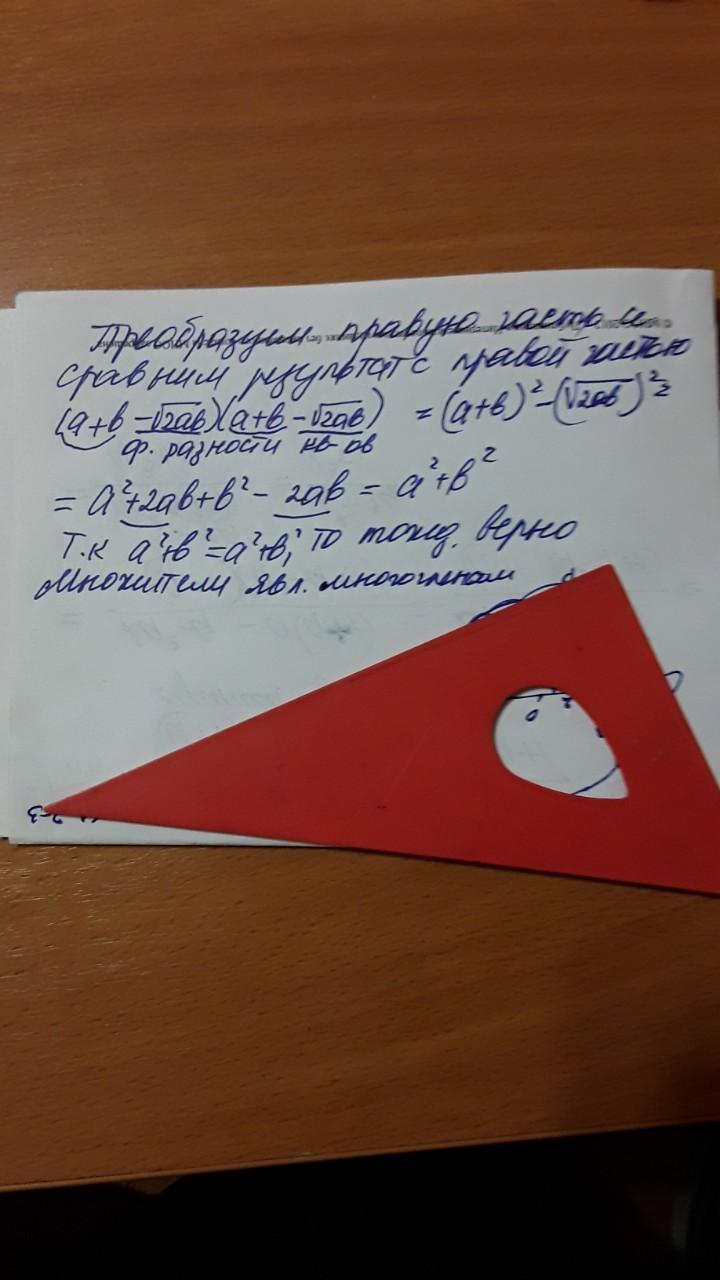 Преобразуем правую часть и
сравним результат с правой частью
(a+b-√2ab)(a+b-√2ab) = (a+b)²-(√2ab)²=
ф. разности кв-ов
= a²+2ab+b²- 2ab = a²+b²
Т.к a²+b²=a²+b², то тожд. верно
Множители явл. многочленам
0